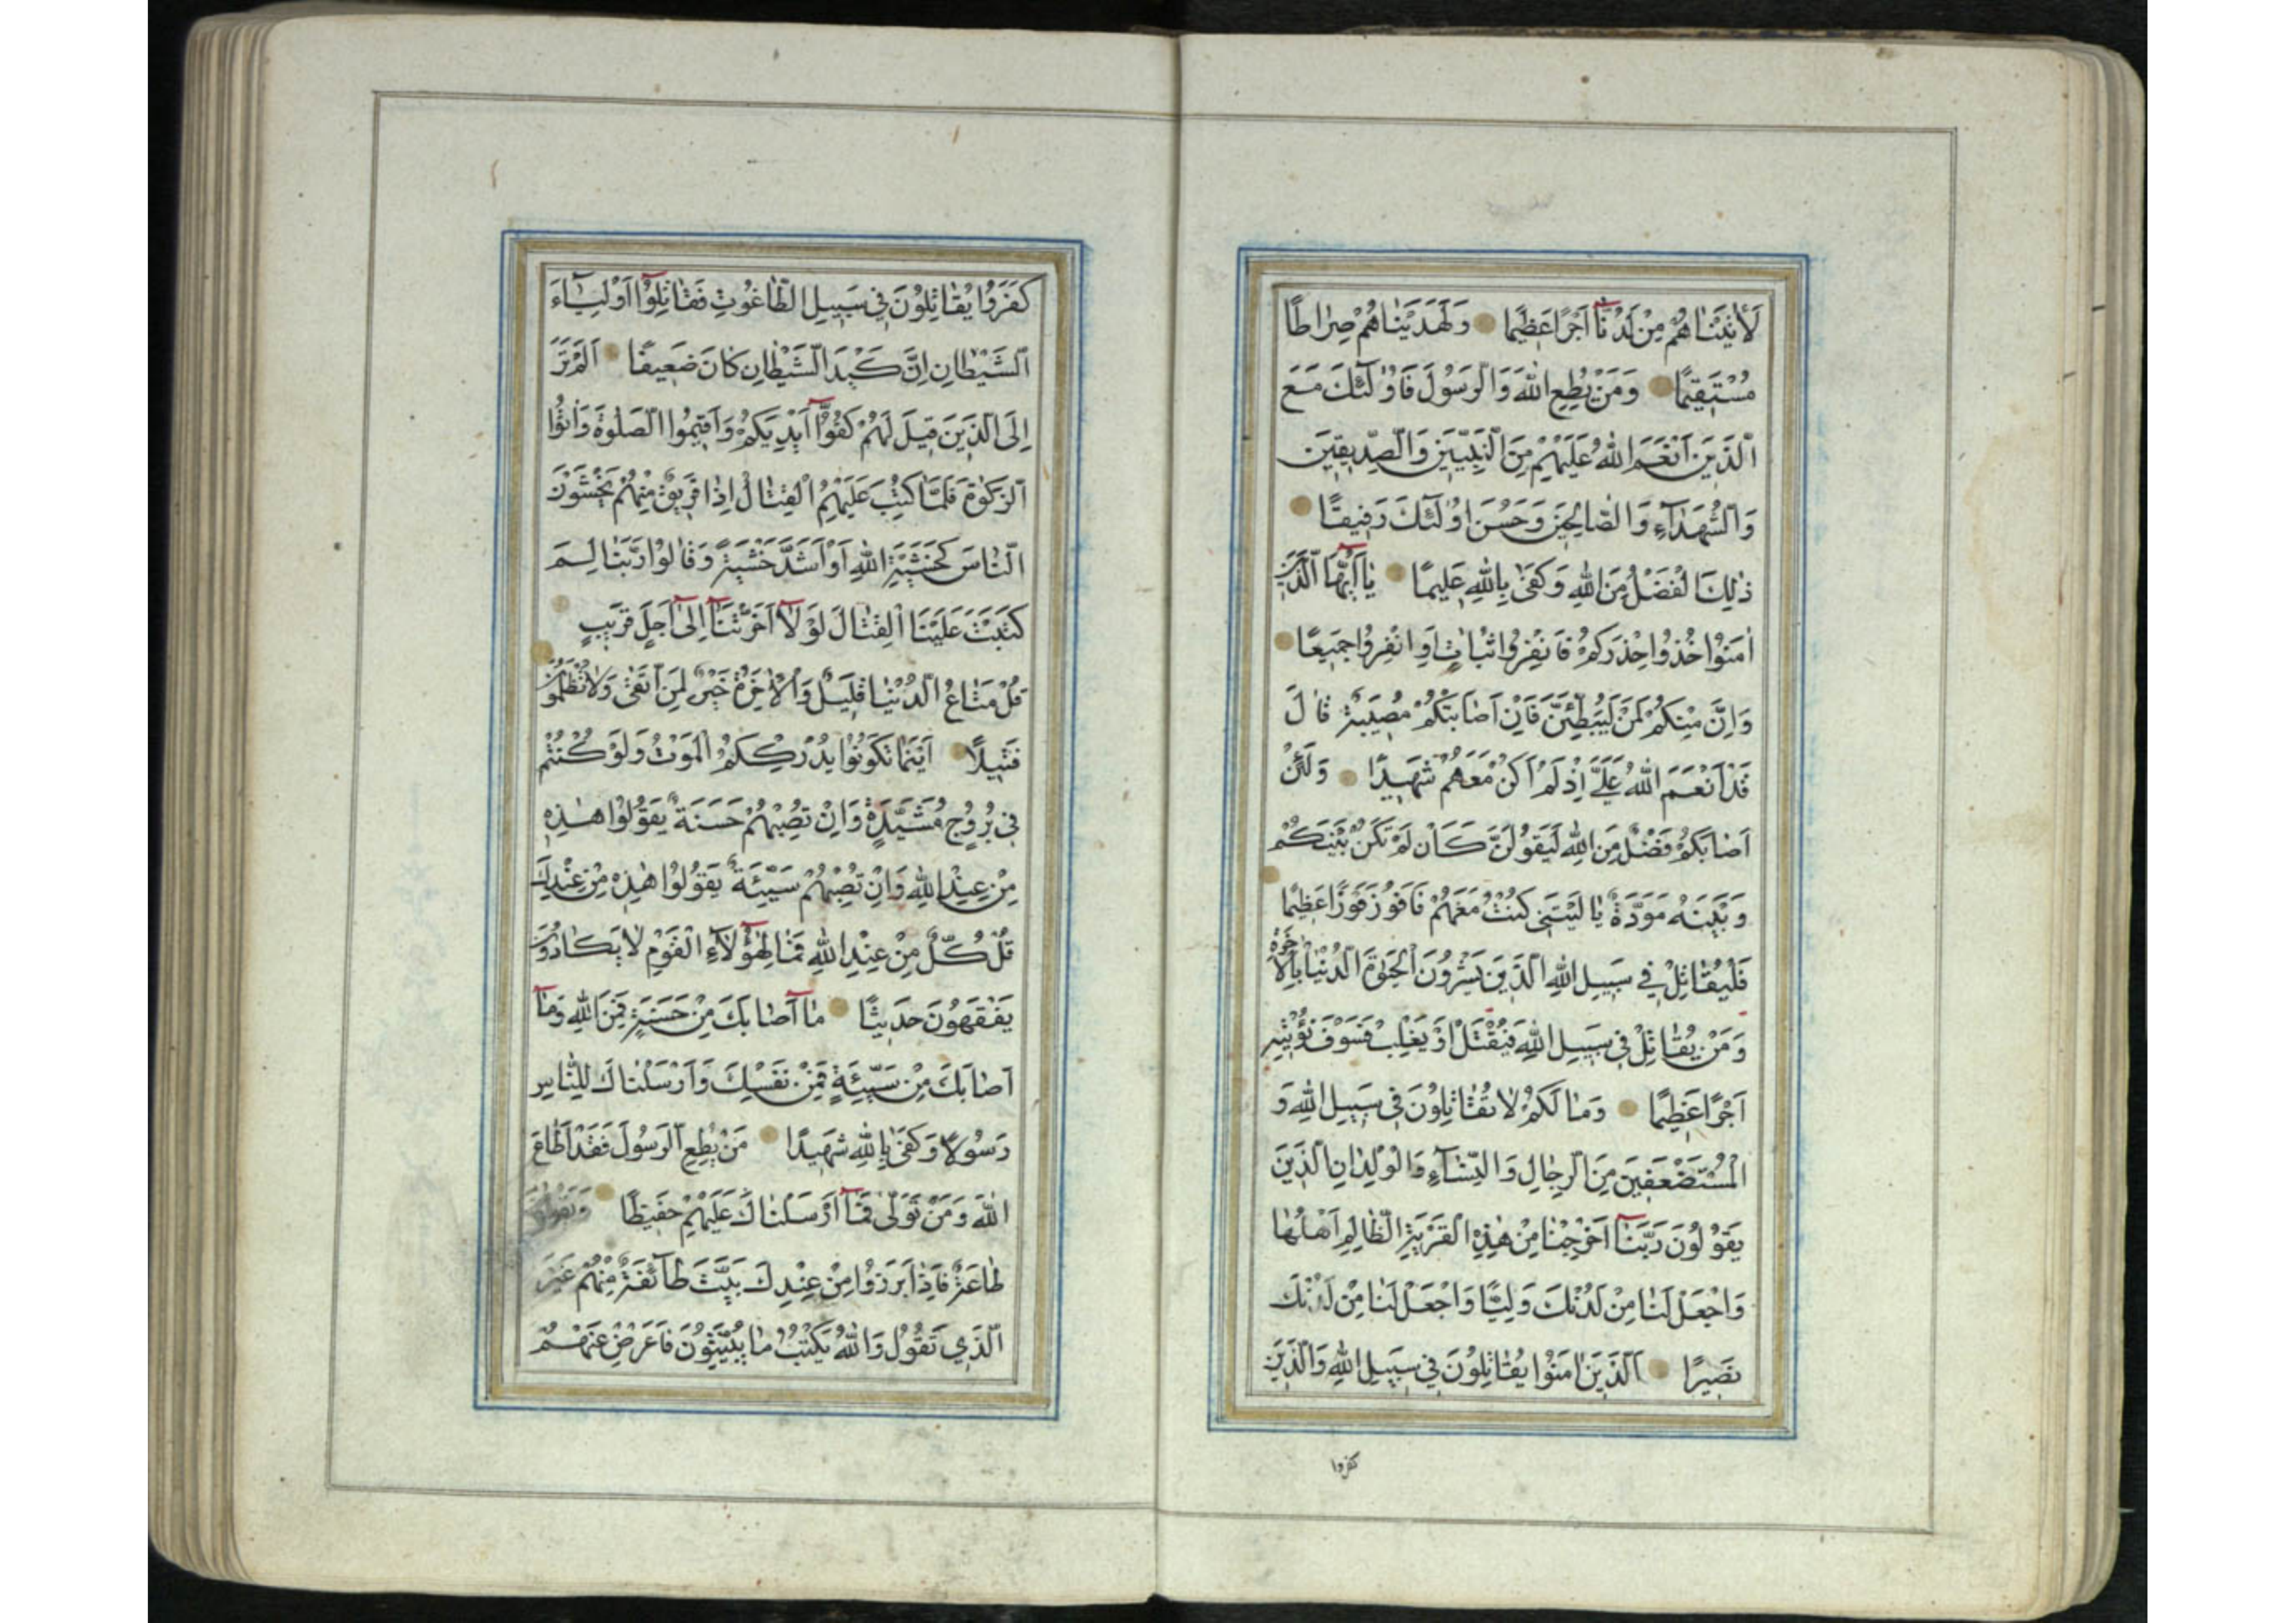 لَأٰتَيْنَاهُمْ مِنْ لَدُنَّآ اَجْرًا عَظٖيمًا وَلَهَدَيْنَاهُمْ صِرَاطًا
مُسْتَقٖيمًا وَمَنْ يُطِعِ اللّٰهَ وَالرَّسُولَ فَاُولٰٓئِكَ مَعَ
الَّذٖينَ اَنْعَمَ اللّٰهُ عَلَيْهِمْ مِنَ النَّبِيّٖينَ وَالصِّدّٖيقٖينَ
وَالشُّهَدَآءِ وَالصَّالِحٖينَ وَحَسُنَ اُولٰٓئِكَ رَفٖيقًا
ذٰلِكَ الْفَضْلُ مِنَ اللّٰهِ وَكَفٰى بِاللّٰهِ عَلٖيمًا يَآ اَيُّهَا الَّذٖينَ
اٰمَنُوا خُذُوا حِذْرَكُمْ فَانْفِرُوا ثُبَاتٍ اَوِ انْفِرُوا جَمٖيعًا
وَاِنَّ مِنْكُمْ لَمَنْ لَيُبَطِّئَنَّ فَاِنْ اَصَابَتْكُمْ مُصٖيبَةٌ قَالَ
قَدْ اَنْعَمَ اللّٰهُ عَلَيَّ اِذْ لَمْ اَكُنْ مَعَهُمْ شَهٖيدًا وَلَئِنْ
اَصَابَكُمْ فَضْلٌ مِنَ اللّٰهِ لَيَقُولَنَّ كَاَنْ لَمْ تَكُنْ بَيْنَكُمْ
وَبَيْنَهُ مَوَدَّةٌ يَا لَيْتَنٖي كُنْتُ مَعَهُمْ فَاَفُوزَ فَوْزًا عَظٖيمًا
فَلْيُقَاتِلْ فٖي سَبٖيلِ اللّٰهِ الَّذٖينَ يَشْرُونَ الْحَيٰوةَ الدُّنْيَا بِالْاٰخِرَةِ
وَمَنْ يُقَاتِلْ فٖي سَبٖيلِ اللّٰهِ فَيُقْتَلْ اَوْ يَغْلِبْ فَسَوْفَ نُؤْتٖيهِ
اَجْرًا عَظٖيمًا وَمَا لَكُمْ لَا تُقَاتِلُونَ فٖي سَبٖيلِ اللّٰهِ وَ
الْمُسْتَضْعَفٖينَ مِنَ الرِّجَالِ وَالنِّسَآءِ وَالْوِلْدَانِ الَّذٖينَ
يَقُولُونَ رَبَّنَآ اَخْرِجْنَا مِنْ هٰذِهِ الْقَرْيَةِ الظَّالِمِ اَهْلُهَا
وَاجْعَلْ لَنَا مِنْ لَدُنْكَ وَلِيًّا وَاجْعَلْ لَنَا مِنْ لَدُنْكَ
نَصٖيرًا اَلَّذٖينَ اٰمَنُوا يُقَاتِلُونَ فٖي سَبٖيلِ اللّٰهِ وَالَّذٖينَ
كفروا
كَفَرُوا يُقَاتِلُونَ فٖي سَبٖيلِ الطَّاغُوتِ فَقَاتِلُوٓا اَوْلِيَآءَ
الشَّيْطَانِ اِنَّ كَيْدَ الشَّيْطَانِ كَانَ ضَعٖيفًا اَلَمْ تَرَ
اِلَى الَّذٖينَ قٖيلَ لَهُمْ كُفُّوٓا اَيْدِيَكُمْ وَاَقٖيمُوا الصَّلٰوةَ وَاٰتُوا
الزَّكٰوةَ فَلَمَّا كُتِبَ عَلَيْهِمُ الْقِتَالُ اِذَا فَرٖيقٌ مِنْهُمْ يَخْشَوْنَ
النَّاسَ كَخَشْيَةِ اللّٰهِ اَوْ اَشَدَّ خَشْيَةً وَقَالُوا رَبَّنَا لِمَ
كَتَبْتَ عَلَيْنَا الْقِتَالَ لَوْ لَآ اَخَّرْتَنَآ اِلٰٓى اَجَلٍ قَرٖيبٍ
قُلْ مَتَاعُ الدُّنْيَا قَلٖيلٌ وَالْاٰخِرَةُ خَيْرٌ لِمَنِ اتَّقٰى وَلَا تُظْلَمُونَ
فَتٖيلًا اَيْنَمَا تَكُونُوا يُدْرِكْكُمُ الْمَوْتُ وَلَوْ كُنْتُمْ
فٖي بُرُوجٍ مُشَيَّدَةٍ وَاِنْ تُصِبْهُمْ حَسَنَةٌ يَقُولُوا هٰذِهِ
مِنْ عِنْدِ اللّٰهِ وَاِنْ تُصِبْهُمْ سَيِّئَةٌ يَقُولُوا هٰذِهِ مِنْ عِنْدِكَ
قُلْ كُلٌّ مِنْ عِنْدِ اللّٰهِ فَمَا لِهٰٓؤُلَآءِ الْقَوْمِ لَا يَكَادُونَ
يَفْقَهُونَ حَدٖيثًا مَآ اَصَابَكَ مِنْ حَسَنَةٍ فَمِنَ اللّٰهِ وَمَآ
اَصَابَكَ مِنْ سَيِّئَةٍ فَمِنْ نَفْسِكَ وَاَرْسَلْنَاكَ لِلنَّاسِ
رَسُولًا وَكَفٰى بِاللّٰهِ شَهٖيدًا مَنْ يُطِعِ الرَّسُولَ فَقَدْ اَطَاعَ
اللّٰهَ وَمَنْ تَوَلّٰى فَمَآ اَرْسَلْنَاكَ عَلَيْهِمْ حَفٖيظًا وَيَقُولُونَ
طَاعَةٌ فَاِذَا بَرَزُوا مِنْ عِنْدِكَ بَيَّتَ طَآئِفَةٌ مِنْهُمْ غَيْرَ
الَّذٖي تَقُولُ وَاللّٰهُ يَكْتُبُ مَا يُبَيِّتُونَ فَاَعْرِضْ عَنْهُمْ